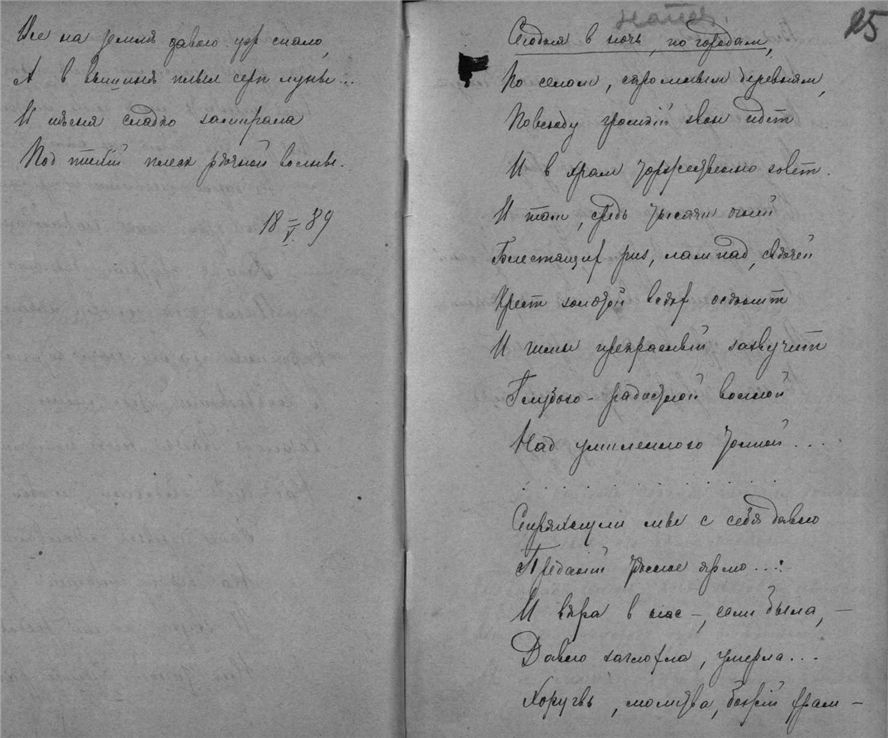 Все на землѣ давно уж спало,
А в вышинѣ плыл серп луны...
И пѣсня сладко замирала
Под тихій плеск рѣчной волны.
18 V 89
25
Сегодня в ночь, по городам,
По селам, скромным деревням,
Повсюду громкій звон идет
И в храм торжественно зовет.
И там, средь тысячи огней
Блестящих риз, лампад, свѣчей
Крест золотой всѣх осѣнит
И гимн прекрасный зазвучит
Глубоко-радостной волной
Над умиленною толпой...
. . . . . . . . . . . .
Стряхнули мы с себя давно
Преданій тѣсное ярмо...:
И вѣра в нас –, если была, –
Давно заглохла, умерла...
Хоругвь, молитва, божій храм –